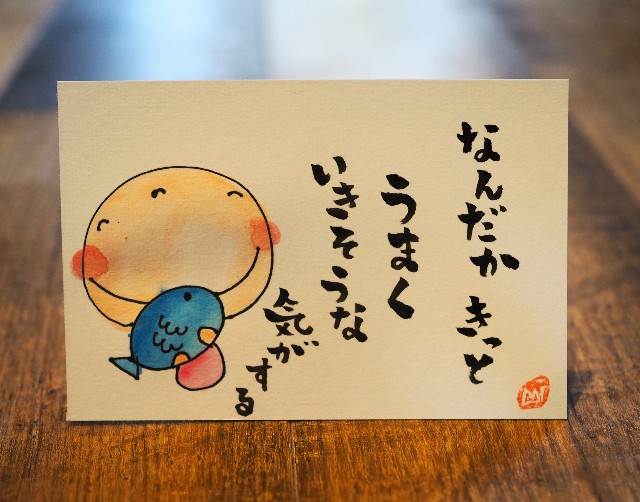 なんだか きっと
うまく
いきそうな
気が
する